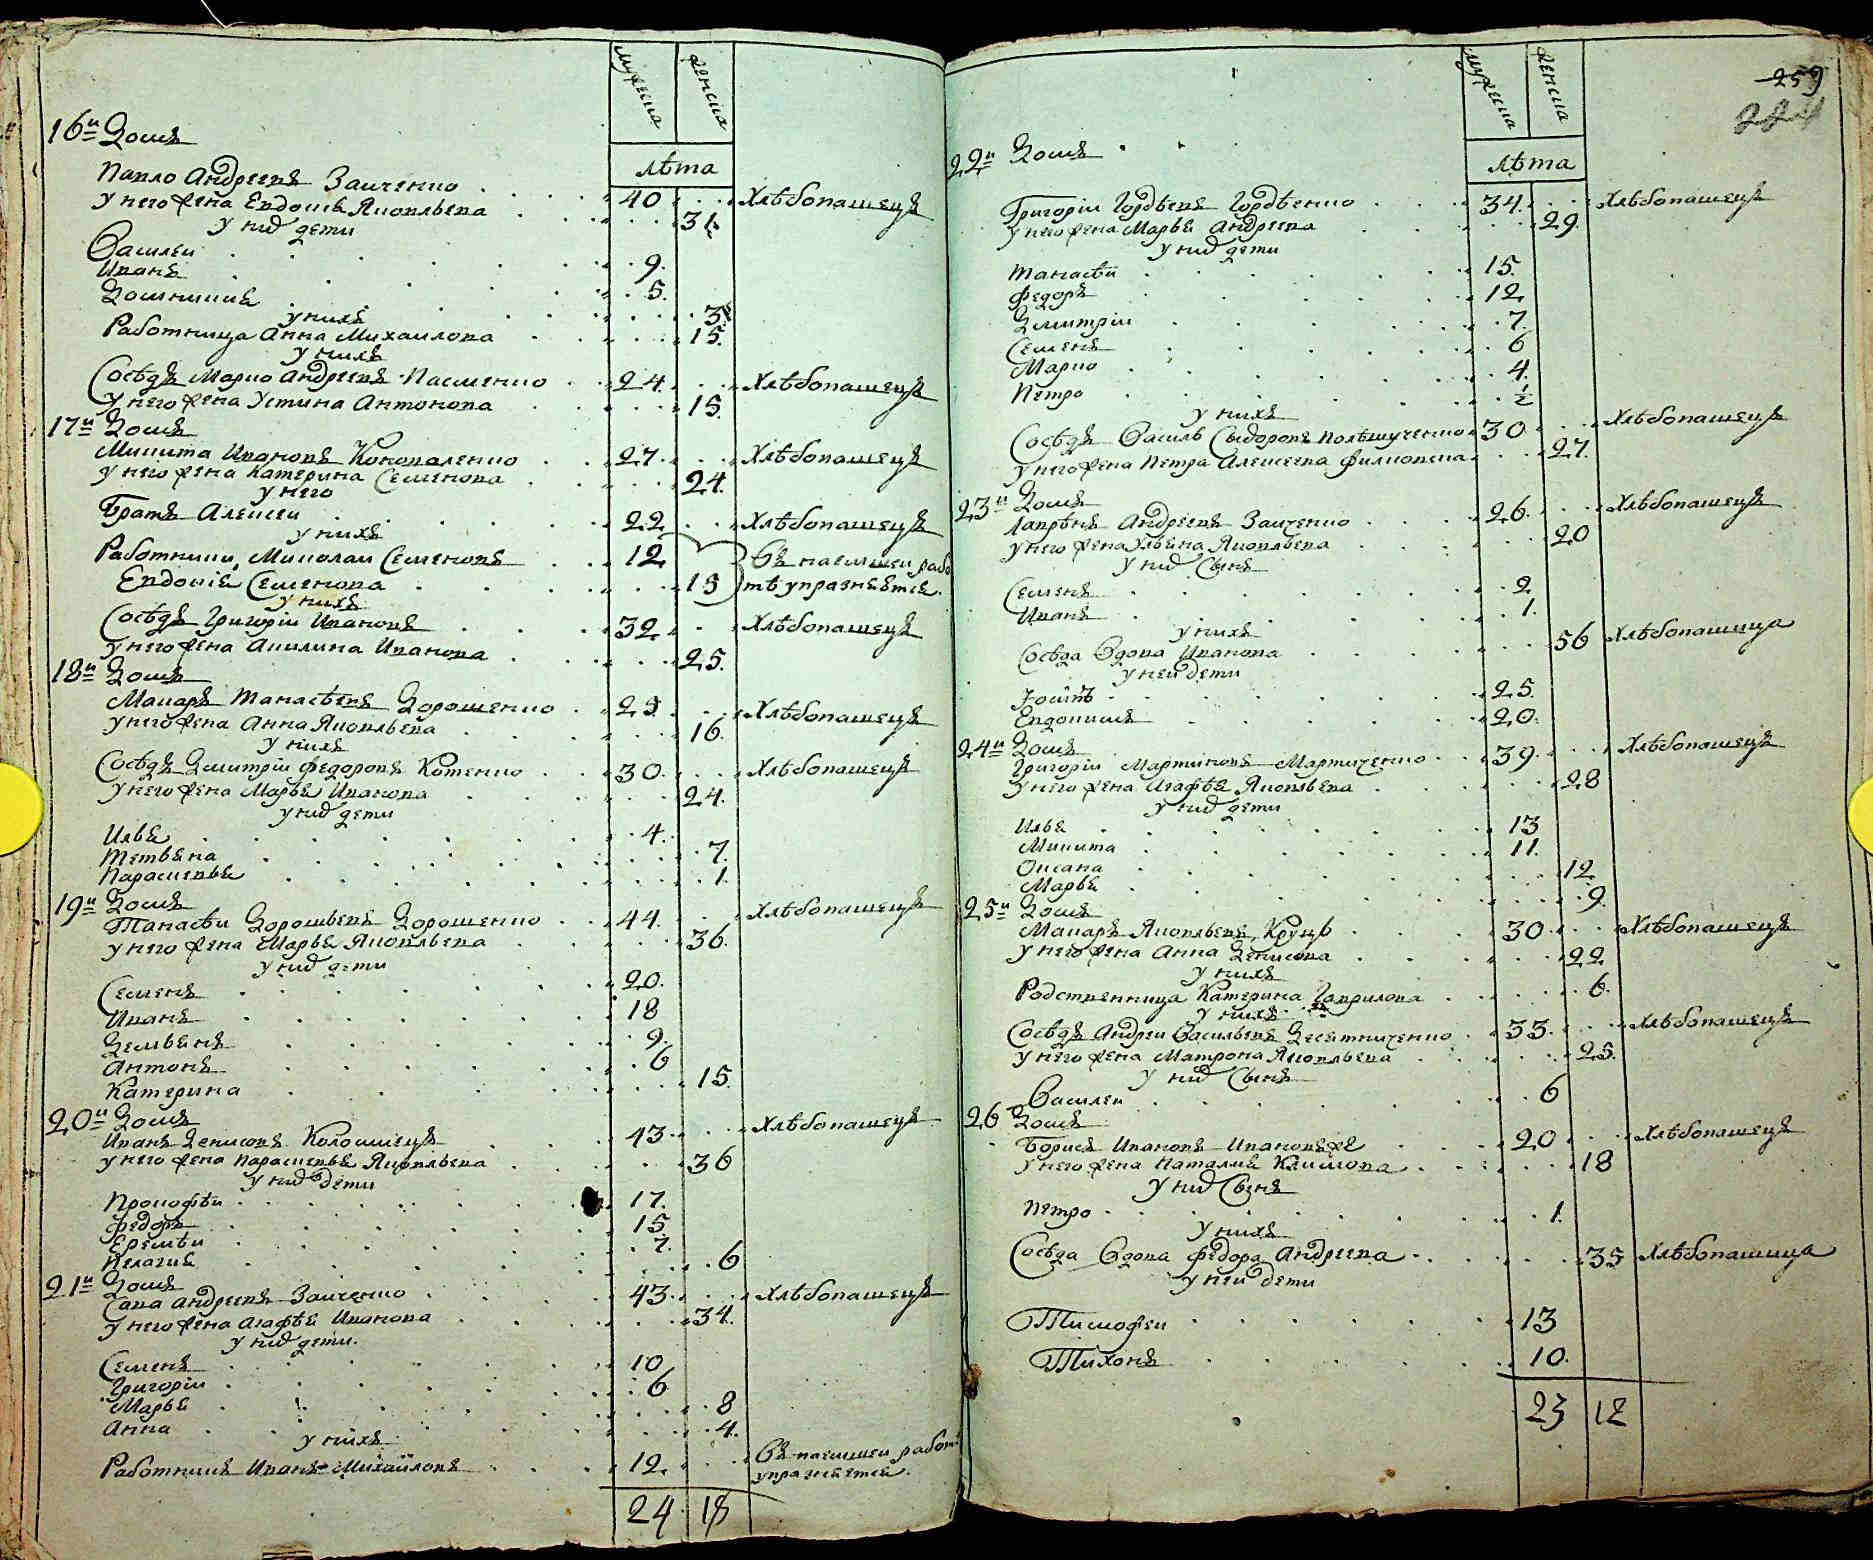 мужеска женска
лѣта
16й Домъ
Павло Андреевъ Заиченко 40 Хлѣбопашецъ
у него жена Евдокія Яковлева 31
у них дети
Василеи 9
Иванъ 5
Домникия 3
у нихъ
Работница Анна Михаилова 15
у нихъ
Сосѣдъ Марко Андреевъ Пасменко 24 Хлѣбопашецъ
у него жена Устина Антонова 15
17й Домъ
Микита Ивановъ Коноваленко 27 Хлѣбопашецъ
у него жена Катерина Семенова 24
у него
Братъ Алексеи 22 Хлѣбопашецъ
у нихъ
Работники, Миколаи Семеновъ 12 Въ наемшеи рабо
Евдокія Семенова 15 тѣ упражняется
у нихъ
Сосѣдъ Григоріи Ивановъ 32 Хлѣбопашецъ
у него жена Акилина Иванова 25
18й Домъ
Макаръ Танасѣевъ Дорошенко 23 Хлѣбопашецъ
у него жена Анна Яковлева 16
у нихъ
Сосѣдъ Дмитріи Федоровъ Котенко 30 Хлѣбопашецъ
у него жена Марья Иванова 24
у них дети
Илья 4
Тетьяна 7
Парасковья 1
19й Домъ
Танасѣи Дорошѣевъ Дорошенко 44 Хлѣбопашецъ
у него жена Марья Яковлева 36
у них дети
Семенъ 20
Иванъ 18
Демьянъ 9
Антонъ 6
Катерина 15
20й Домъ
Иванъ Денисовъ Коломиецъ 43 Хлѣбопашецъ
у него жена Парасковья Яковлева 36
у них дети
Прокофѣи 17
Федоръ 15
Еремѣи 7
Пелагия 6
21й Домъ
Сава Андреевъ Заиченко 43 Хлѣбопашецъ
у него жена Агафья Иванова 34
у них дети
Семенъ 10
Григоріи 6
Марья 8
Анна 4
у нихъ
Работникъ Иванъ Михаиловъ 12 Въ наемшеи работѣ
упражняется
24 18
259
224
мужеска женска
лѣта
22й Домъ
Григоріи Гордѣевъ Гордѣенко 34 Хлѣбопашецъ
у него жена Марья Андреева 29
у них дети
Танасѣи 15
Федоръ 12
Дмитріи 7
Семенъ 6
Марко 4
Петро ½
у нихъ
Сосѣдъ Василь Сидоровъ 30 Хлѣбопашецъ
у него жена Петра Алексеева 27
23й Домъ
Лаврѣнъ Андреевъ Заиченко 26 Хлѣбопашецъ
у него жена Ульяна Яковлева 20
у них Сынъ
Семенъ 2
Иванъ 1
у нихъ
Сосѣда Вдова Иванова 56 Хлѣбопашица
у неи дети
Іосипъ 25
Евдокимъ 20
24й Домъ
Григоріи Мартиновъ Мартиченко 39 Хлѣбопашецъ
у него жена Агафья Яковлева 28
у них дети
Илья 13
Микита 11
Оксана 12
Марья 9
25й Домъ
Макаръ Яковлевъ Круць 30 Хлѣбопашецъ
у него жена Анна Денисова 22
у нихъ
Родственница Катерина Гаврилова 6
у нихъ
Сосѣдъ Андреи Васильевъ Десятниченко 33 Хлѣбопашецъ
у него жена Матрона Яковлева 25
у них Сынъ
Василеи 6
26 Домъ
Борисъ Ивановъ 20 Хлѣбопашецъ
у него жена Наталия Климова 18
у них Сынъ
Петро 1
у нихъ
Сосѣда Вдова Федора Андреева 35 Хлѣбопашица
у неи дети
Тимофеи 13
Тихонъ 10
23 12